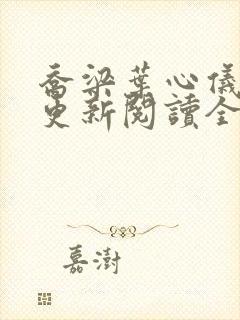 喬梁葉心儀
更新閱讀全
嘉澍